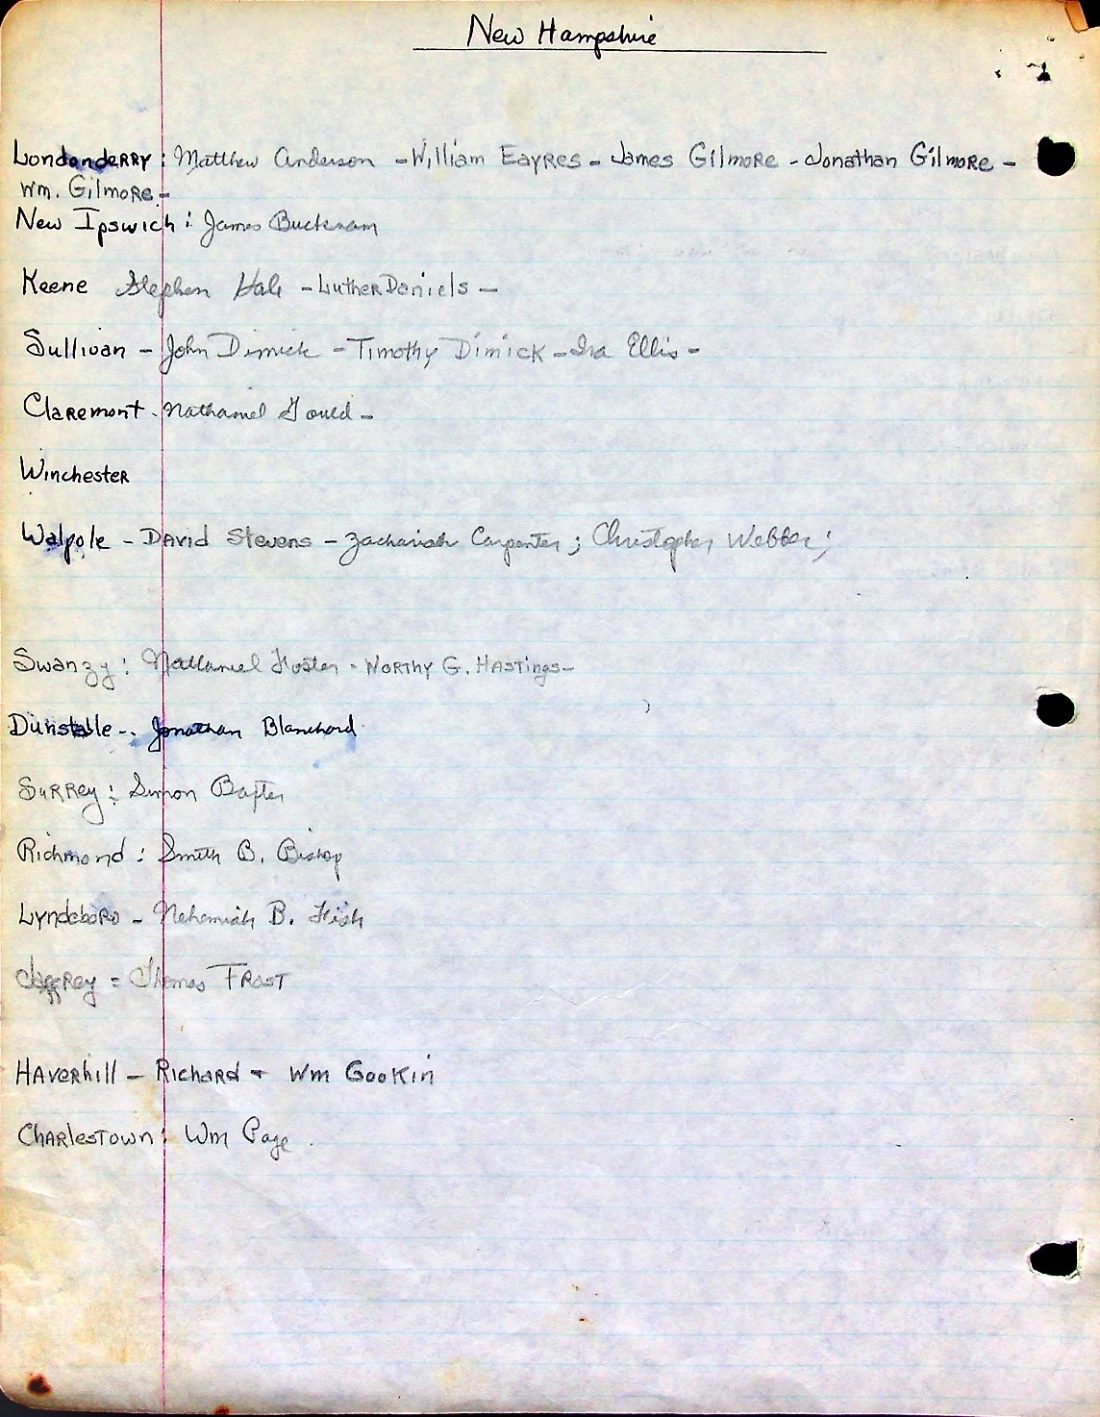 New Hampshire
Londonderry : Matthew Anderson - William Eayres - James Gilmore - Jonathan Gilmore -
Wm. Gilmore -
New Ipswich : James Bucknam
Keene Stephen Hale - Luther Daniels -
Sullivan - John Dimick - Timothy Dimick - Ira Ellis -
Claremont - Nathaniel Gould -
Winchester
Walpole - David Stevens - Zachariah Carpenter ; Christopher Webber ;
Swanzy : Nathaniel Foster - Worthy G. Hastings -
Dunstable - - Jonathan Blanchard
Surrey : Simon Baxter
Richmond : Smith B. Bishop
Lyndeboro - Nehemiah B. Fish
Jaffrey = Thomas Frost
Haverhill - Richard + Wm Gookin
Charlestown : Wm Page .